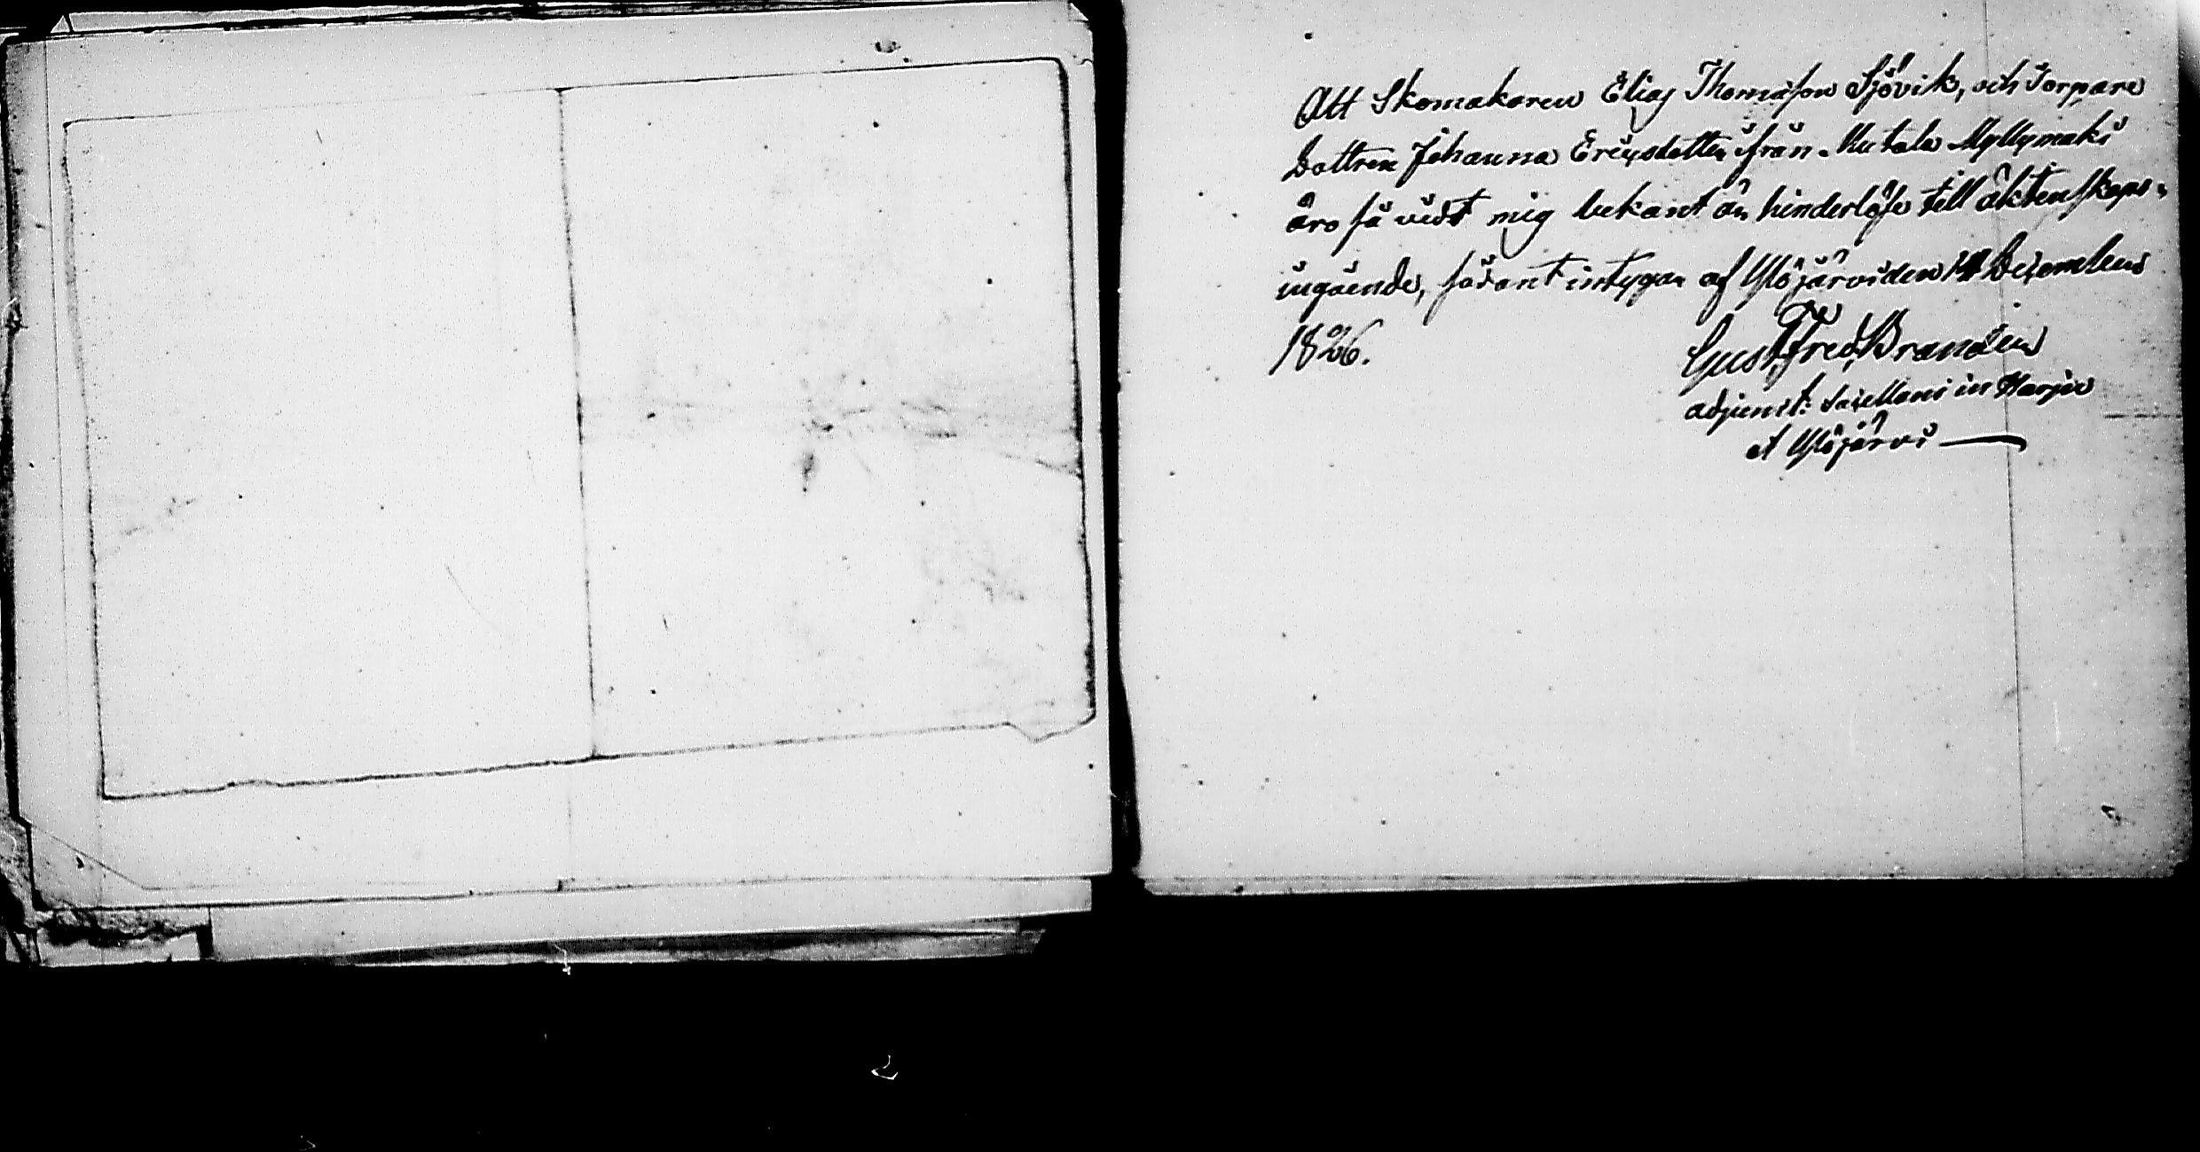 Att Skomakaren Elias Thomasson Sjövik, och Torpare
Dottren Johanna Ericsdotter ifrån Mutala Myllymäki
äro så vidt mig bekant är hinderlöse till äktenskaps
ingående, sådant intygar af Ylöjärvi den Decembens
1826.
Gust. Fred. Brandein
adjunct: Sacellani in Harju
et Ylöjärvi